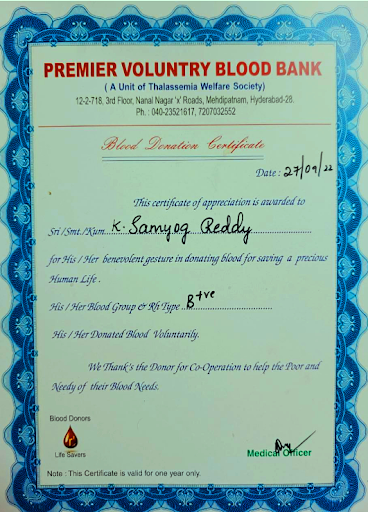 PREMIER VOLUNTRY BLOOD BANK
( A Unit of Thalassemia Welfare Society)
12-2-718, 3rd Floor, Nanal Nagar 'x' Roads, Mehdipatnam, Hyderabad-28.
Ph. : 040-23521617, 7207032552
Blood Donation Certificate
Date : 27/09/22
This certificate of appreciation is awarded to
Sri /Smt./Kum. K. Samyog Reddy
for His / Her benevolent gesture in donating blood for saving a precious
Human Life .
His / Her Blood Group & Rh Type B+ve
His / Her Donated Blood Voluntarily.
We Thank's the Donor for Co-Operation to help the Poor and
Needy of their Blood Needs.
Blood Donors
Life Savers
Medical Officer
Note : This Certificate is valid for one year only.